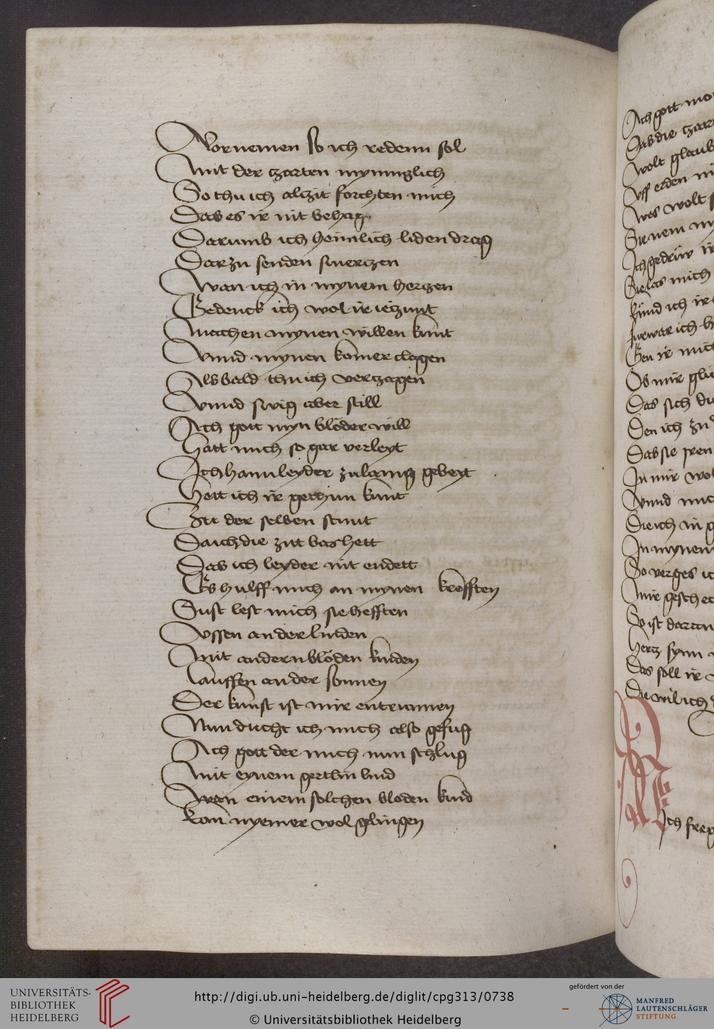 Vornemen so ich redenn sol
Mit der zarten mynnglich
So thu ich alzit forchten mich
Das es ir nit behag
Darumb ich heimlich liden drag
Darzu senden smertzen
Wan ich in mynem hertzen
Gedenck ich wol ir ietzunt
Machen mynen willen kunt
Vnnd mynen komer clagen
Als bald thu ich verzagen
Vnnd swig aber still
Ach gott myn blöder will
Hatt mich so gar verleyt
Ich hann leyder zu lanng gebeyt
Hett ich ir gethun kunt
Zu der selben stunt
Da ich die zit bas hett
Das ich leyder nit endett
Es hulff mich an mynen krefften
Sust lest mich sie hefften
Vssen an der linden
Mit andern blöden kinden
Lauffen an der sonnen
Der kunst ist mir entrunnen
Nun ducht ich mich also gefug
Ach gott der mich nun schlug
Mit eynem gertlin lind
Wan einem solchen bloden kind
Kan nyemer wol glingen
Ach gott
Das die
Wolt
Vff erden
Was wolt
Ich
mich
ich
Ob mir
Das sich
Den ich
Das sie
In mir
Vnnd
Die ich in
In mynem
So verges
Mir
So ist
Hertz synn
Das soll ir
Die wil ich
Ich
UNIVERSITÄTS-
BIBLIOTHEK
HEIDELBERG
http://digi.ub.uni-heidelberg.de/diglit/cpg313/0738
© Universitätsbibliothek Heidelberg
gefördert von der
MANFRED
LAUTENSCHLÄGER
STIFTUNG